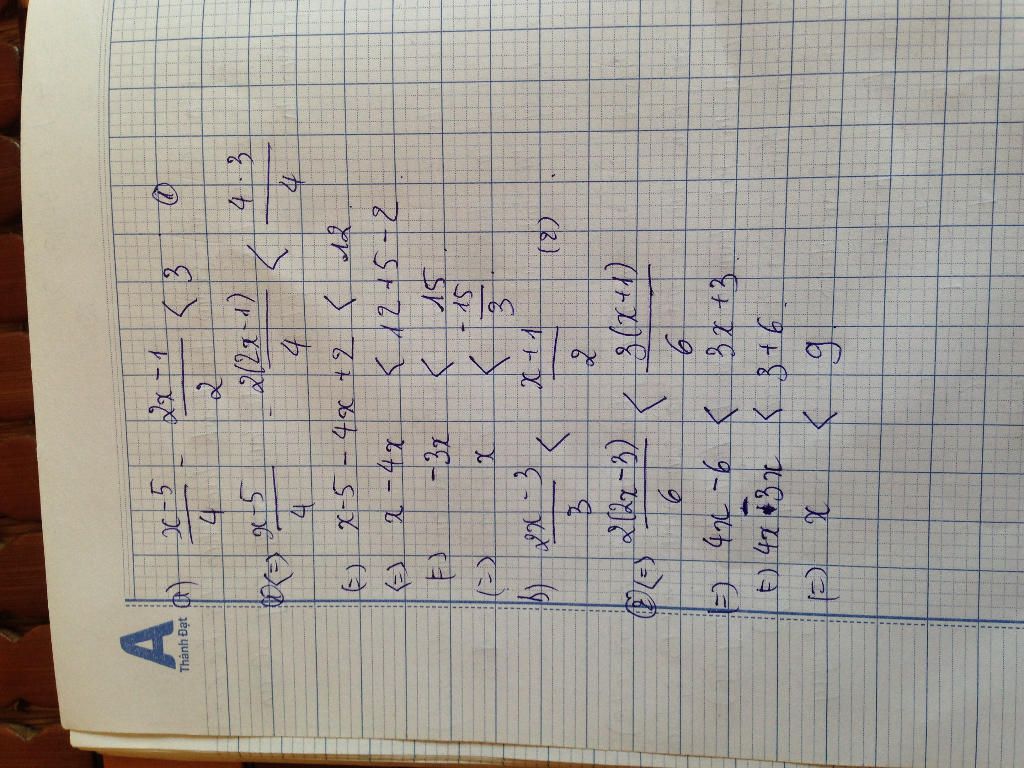 A
Thành Đạt
a) (x-5)/4 - (2x-1)/2 < 3 (1)
(1) (=) (x-5)/4 - 2(2x-1)/4 < 4.3/4
(=) x-5-4x+2 < 12
(=) x-4x < 12+5-2
(=) -3x < 15
(=) x < -15/3
b) (2x-3)/3 < (x+1)/2 (2)
(2) (=) 2(2x-3)/6 < 3(x+1)/6
(=) 4x-6 < 3x+3
(=) 4x-3x < 3+6
(=) x < 9